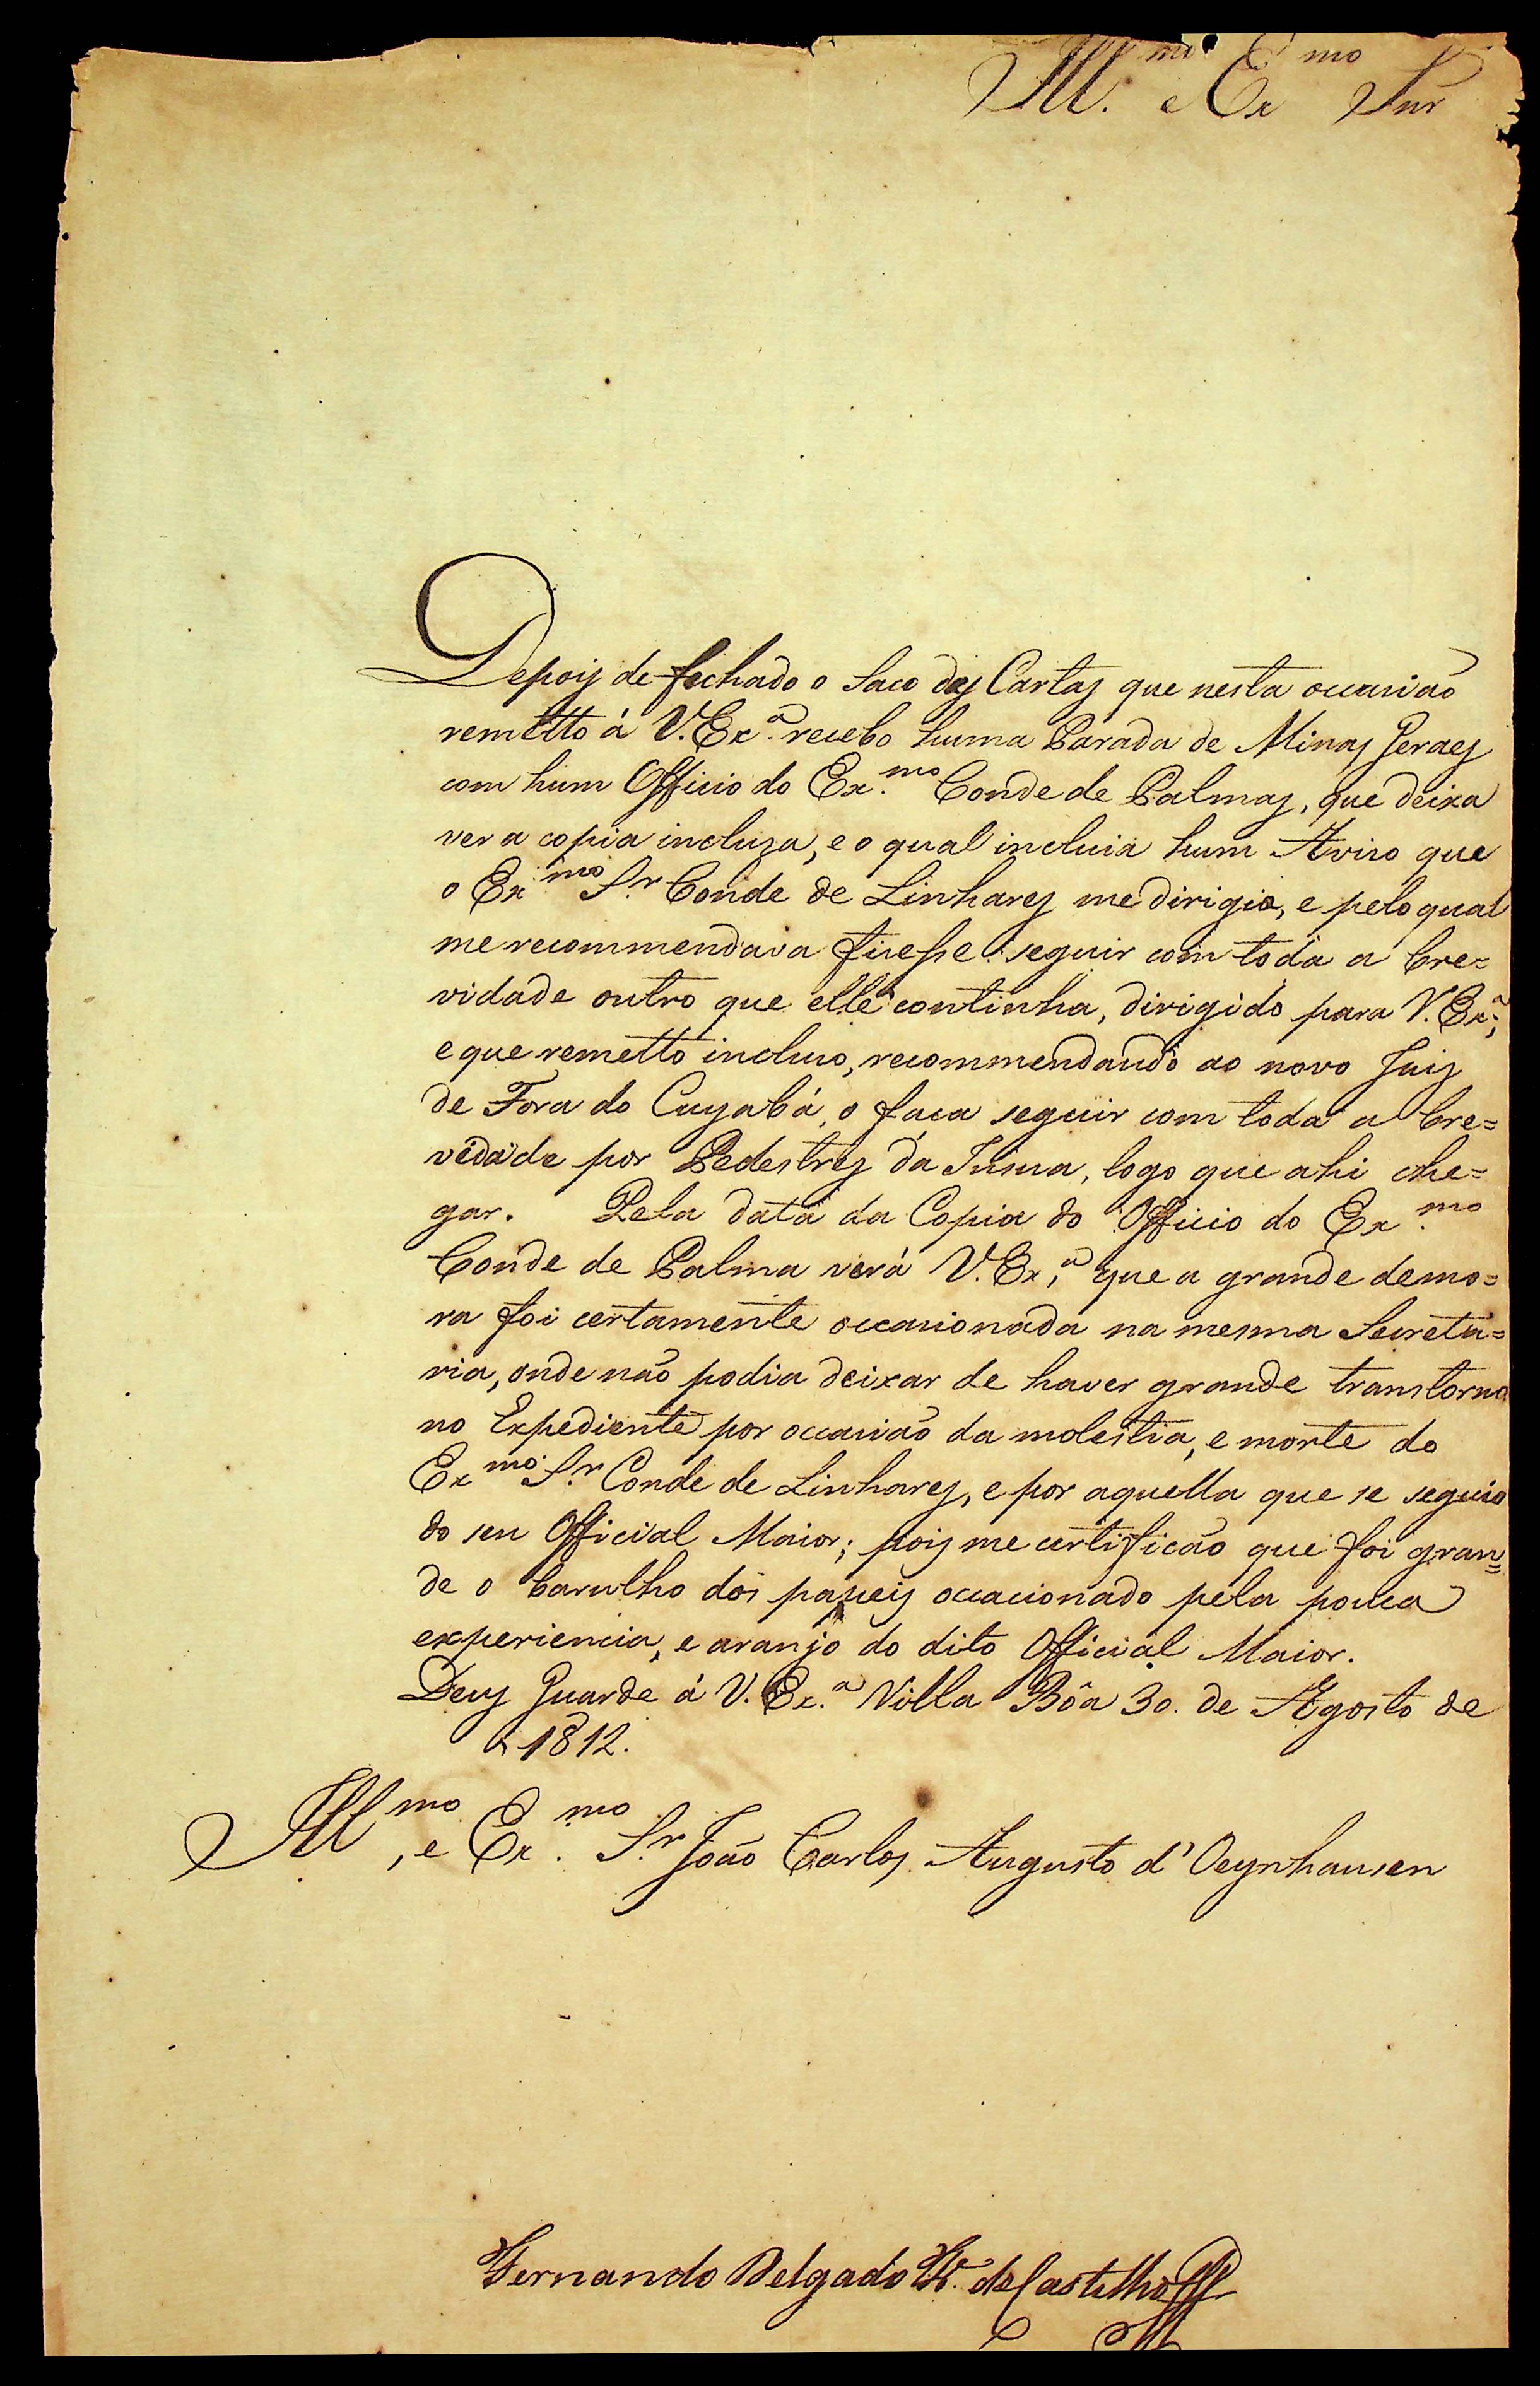 Ill.mo e Ex.mo Snr
Depois de fechado o Saco das Cartas que nesta occasião
remetto á V. Ex.a recebo huma Parada de Minas Geraes
com hum Officio do Ex.mo Conde de Palmas, que deixa
ver a copia incluza, e o qual incluia hum Aviso que
o Ex.mo S.r Conde de Linhares me dirigio, e pelo qual
me recommendava fizesse seguir com toda a bre=
vidade outro que elle continha, dirigido para V. Ex.a,
e que remetto incluso, recommendando ao novo Juis
de Fora do Cuyabá, o faca seguir com toda a bre=
vidade por Pedestres da Insua, logo que ahi che=
gar. Pela data da Copia do Officio do Ex.mo
Conde de Palma verá V. Ex.a que a grande demo=
ra foi certamente occasionada na mesma Secreta=
ria, onde não podia deixar de haver grande transtorno
no Expediente por occasião da molestia, e morte do
Ex.mo S.r Conde de Linhares, e por aquella que se seguio
do seu Official Maior; pois me certificão que foi gran=
de o barulho dos papeis occacionado pela pouca
experiencia, e aranjo do dito Official Maior.
Deus Guarde á V. Ex.a Villa Bôa 30. de Agosto de
1812.
Ill.mo, e Ex.mo S.r João Carlos Augusto d'Oeynhausen
Fernando Delgado Fr. de Castilho